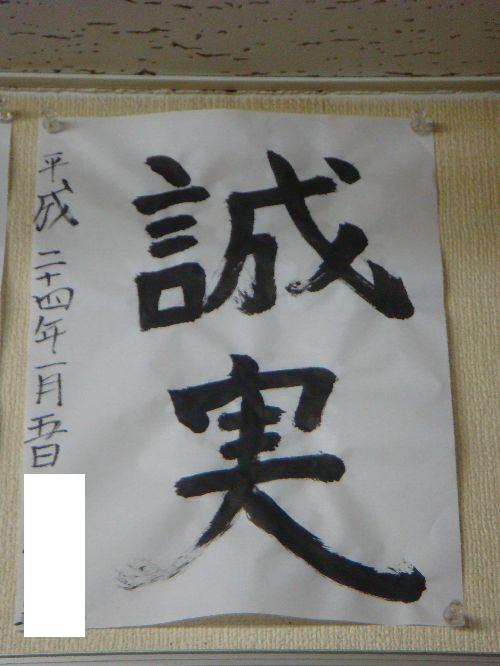 誠実
平成二十四年一月五日